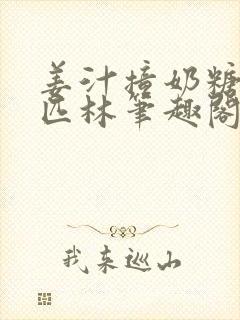 姜汁撞奶糖
匹林笔趣阁
我来巡山